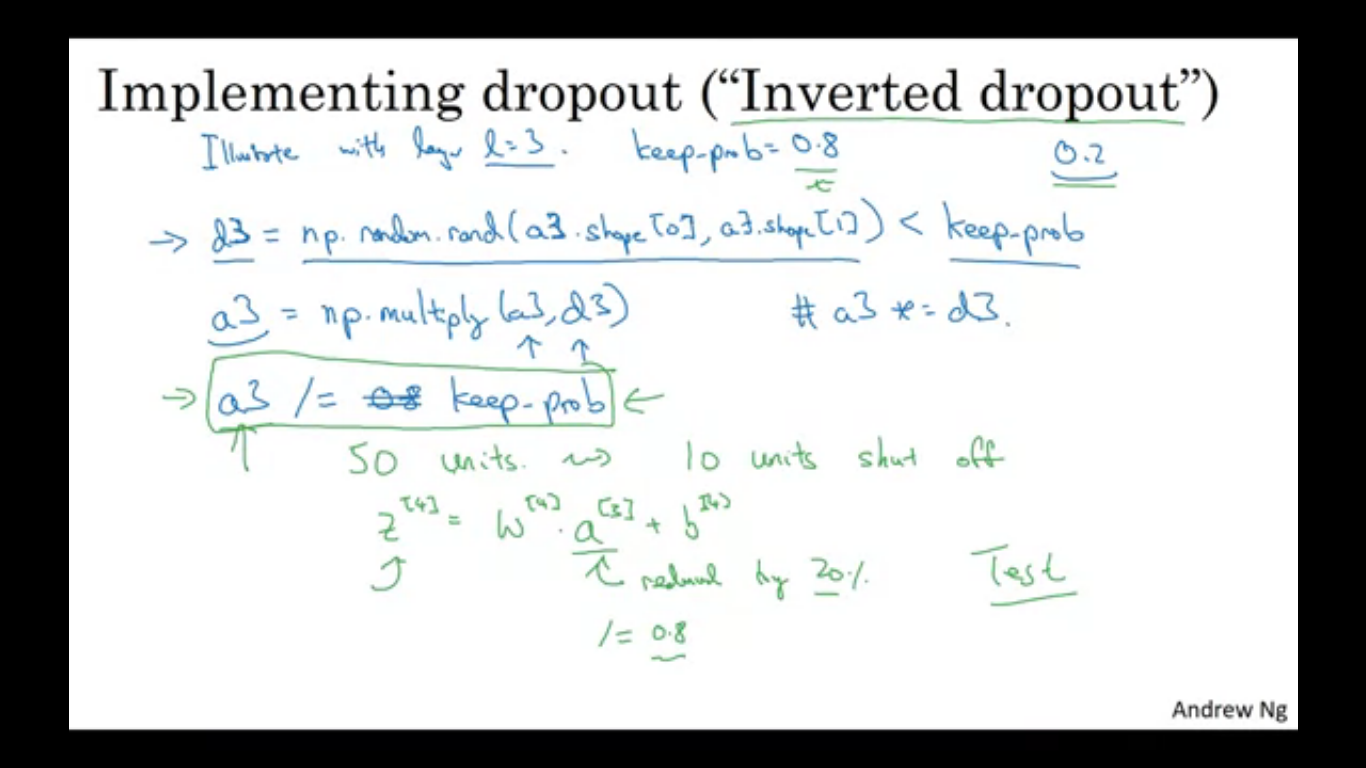 Implementing dropout (“Inverted dropout”)
Illustrate with layer l=3. keep-prob= 0.8 0.2
→ d3 = np.random.rand(a3.shape[0], a3.shape[1]) < keep-prob
a3 = np.multiply(a3, d3) # a3 *= d3.
→ a3 /= 0.8 keep-prob ←
50 units. ⇝ 10 units shut off
z[4] = W[4] · a[3] + b[4]
reduced by 20%. Test
/= 0.8
Andrew Ng